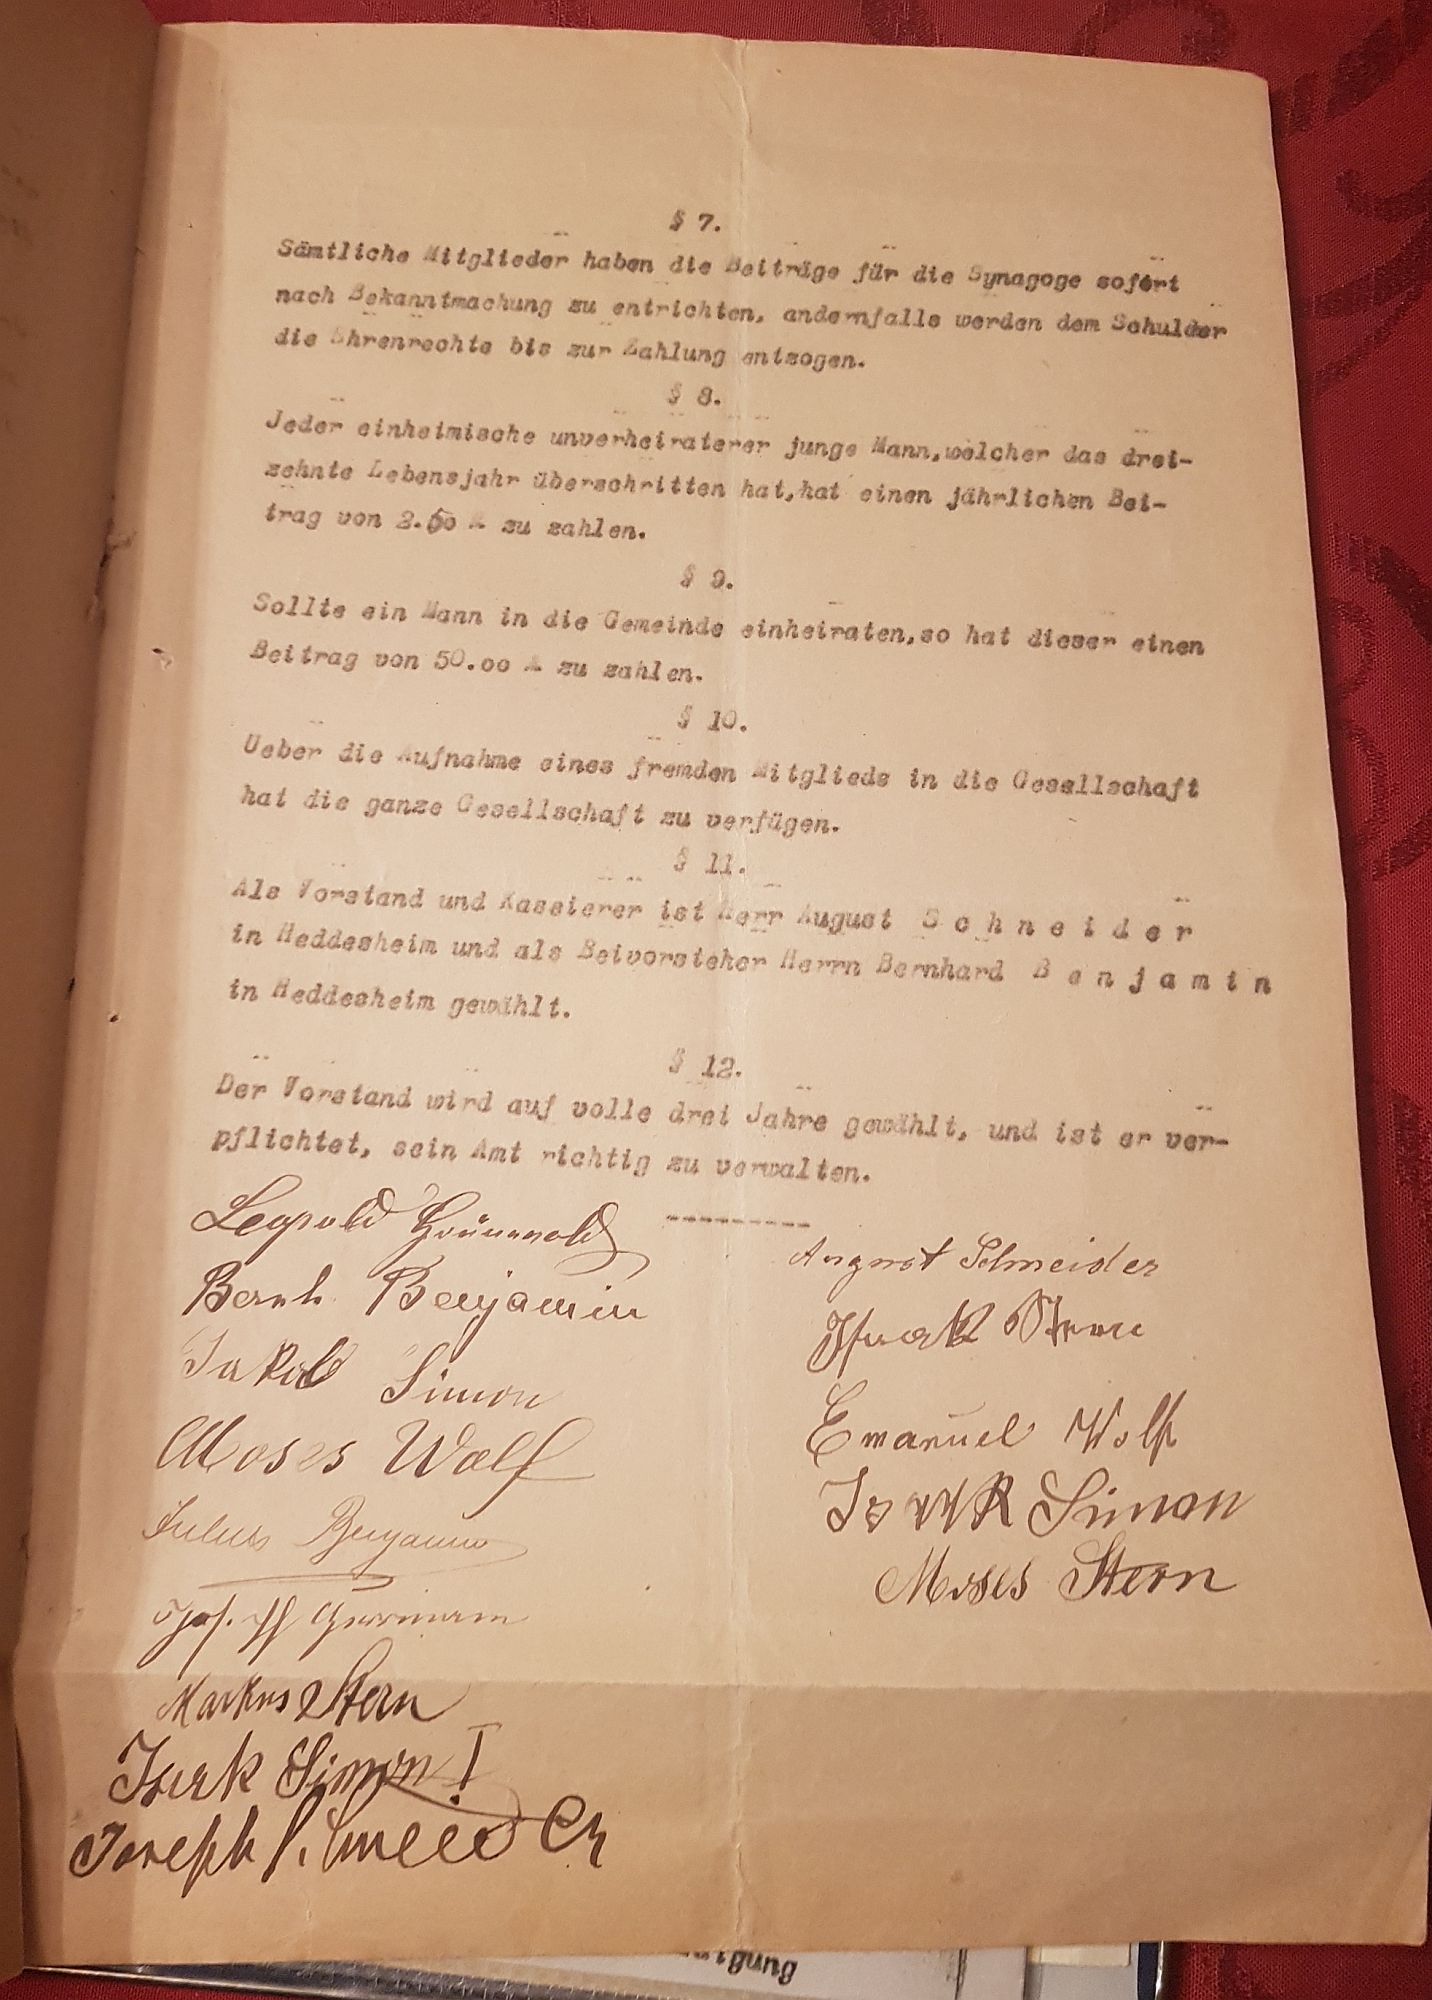 § 7.
Sämtliche Mitglieder haben die Beiträge für die Synagoge sofort
nach Bekanntmachung zu entrichten, andernfalls werden dem Schulder
die Ehrenrechte bis zur Zahlung entzogen.
§ 8.
Jeder einheimische unverheiraterer junge Mann,welcher das drei-
zehnte Lebensjahr überschritten hat,hat einen jährlichen Bei-
trag von 2.50 M zu zahlen.
§ 9.
Sollte ein Mann in die Gemeinde einheiraten,so hat dieser einen
Beitrag von 50.00 M zu zahlen.
§ 10.
Ueber die Aufnahme eines fremden Mitglieds in die Gesellschaft
hat die ganze Gesellschaft zu verfügen.
§ 11.
Als Vorstand und Kassierer ist Herr August Schneider
in Heddesheim und als Beivorsteher Herrn Bernhard Benjamin
in Heddesheim gewählt.
§ 12.
Der Vorstand wird auf volle drei Jahre gewählt, und ist er ver-
pflichtet, sein Amt richtig zu verwalten.
---------
Leopold Grünewald
Bernh. Benjamin
Jakob Simon
Moses Wolf
Julius Benjamin
Jos. Herrmann
Markus Stern
Isack Simon I
Joseph Schneider
August Schneider
Isaak Stern
Emanuel Wolf
Isaak Simon
Moses Stern